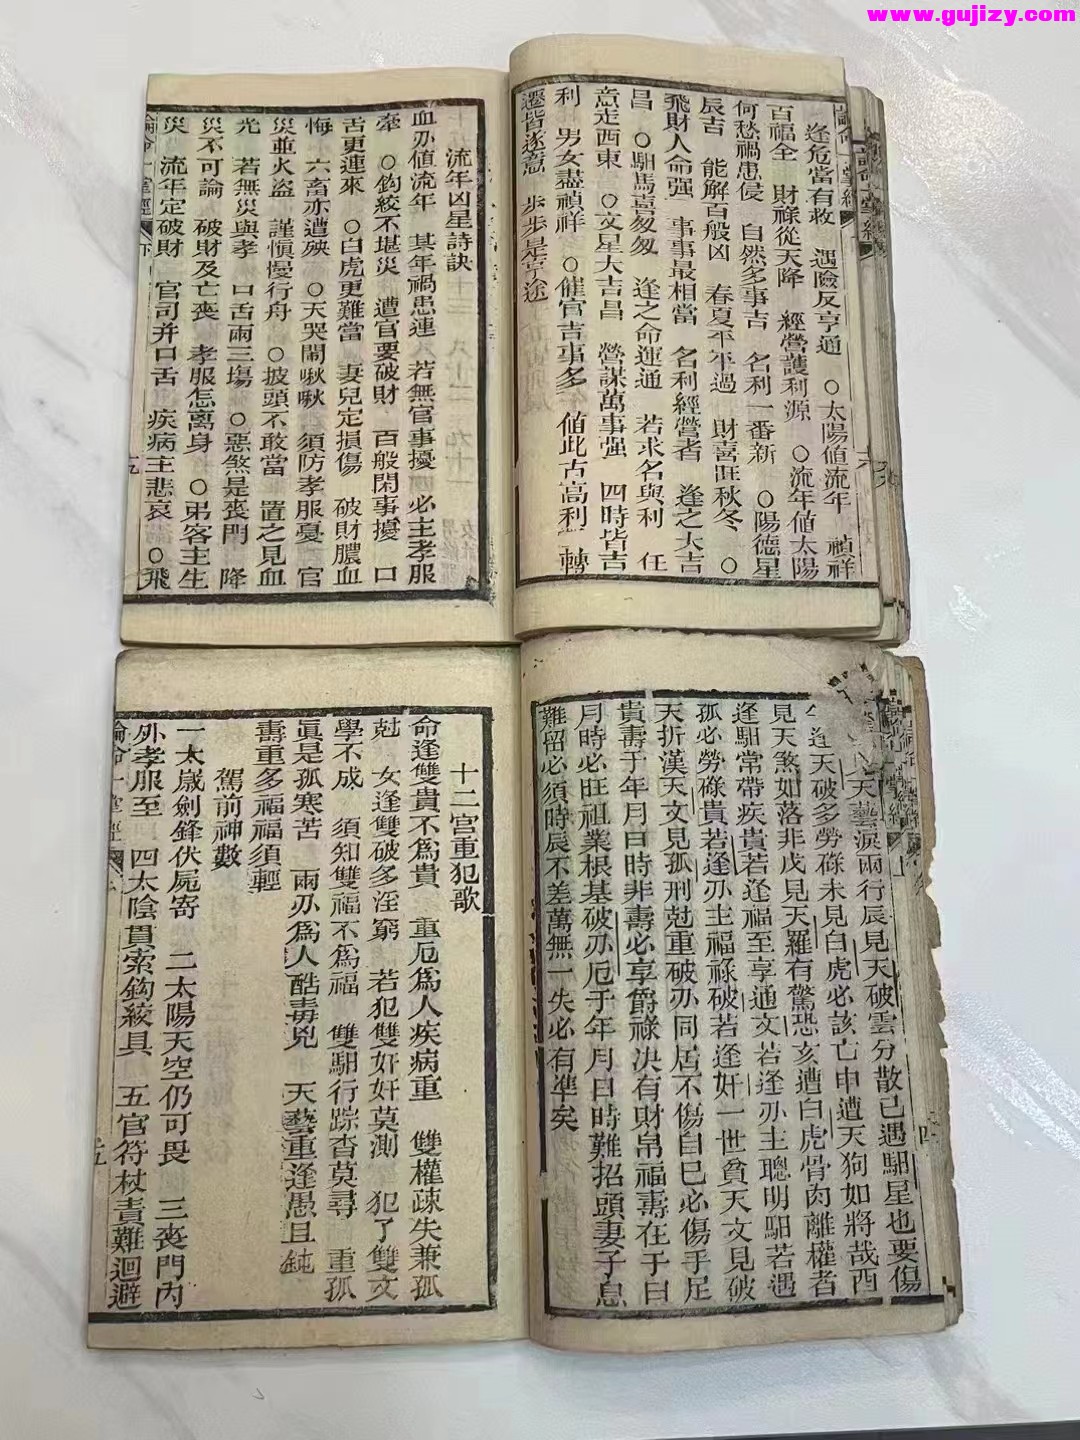 www.gujizy.com
論命一掌經
逢危當有救　遇險反亨通　○太陽値流年　禎祥
百福全　財祿從天降　經營護利源　○流年値太陽
何愁禍患侵　自然多事吉　名利一番新　○陽德星
辰吉　能解百般凶　春夏平平過　財喜旺秋冬　○
飛財人命强　事事最相當　名利經營者　逢之大吉
昌　○馹馬喜匆匆　逢之命運通　若求名與利　任
意走西東　○文星大吉昌　營謀萬事强　四時皆吉
利　男女盡禎祥　○催官吉事多　値此古高利　轉
遷皆遂意　步步是亨途
流年凶星詩訣
血刃値流年　某年禍患連　若無官事擾　必主孝服
牽　○鈎絞不堪災　遭官要破財　百般閑事擾　口
舌更連來　○白虎更難當　妻兒定損傷　破財膿血
悔　六畜亦遭殃　○天哭鬧啾啾　須防孝服憂　官
災並火盜　謹愼慢行舟　○披頭不敢當　置之見血
光　若無災與孝　口舌兩三塲　○惡煞是喪門　降
災不可論　破財及亡喪　孝服怎离身　○弔客主生
災　流年定破財　官司并口舌　疾病主悲哀　○飛
論命一掌經　下　五
天藝淚兩行辰見天破雲分散巳遇馹星也要傷
逢天破多勞碌未見白虎必該亡申遭天狗如將哉酉
見天煞如落非戌見天羅有驚恐亥遭白虎骨肉離權者
逢馹常帶疾貴若逢福至享通文若逢刃主聰明馹若遇
孤必勞碌貴若逢刃主福祿破若逢奸一世貧天文見破
夭折漢天文見孤刑尅重破刃同居不傷自已必傷手足
貴壽于年月日時非壽必享爵祿決有財帛福壽在于日
月時必旺祖業根基破刃厄于年月日時難招頭妻子息
難招必須時辰不差萬無一失必有凖矣
十二宮重犯歌
命逢雙貴不爲貴　重厄爲人疾病重　雙權疎失兼孤
尅　女逢雙破多淫窮　若犯雙奸奸莫測　犯了雙文
學不成　須知雙福不爲福　雙馹行踪杳莫尋　重孤
眞是孤寒苦　兩刃爲人酷毒兇　天藝重逢愚且鈍
壽重多福福須輕
駕前神數
一太歲劍鋒伏屍寄　二太陽天空仍可畏　三喪門內
外孝服至　四太陰貫索鈎絞具　五官符杖責難迴避
論命一掌經　五